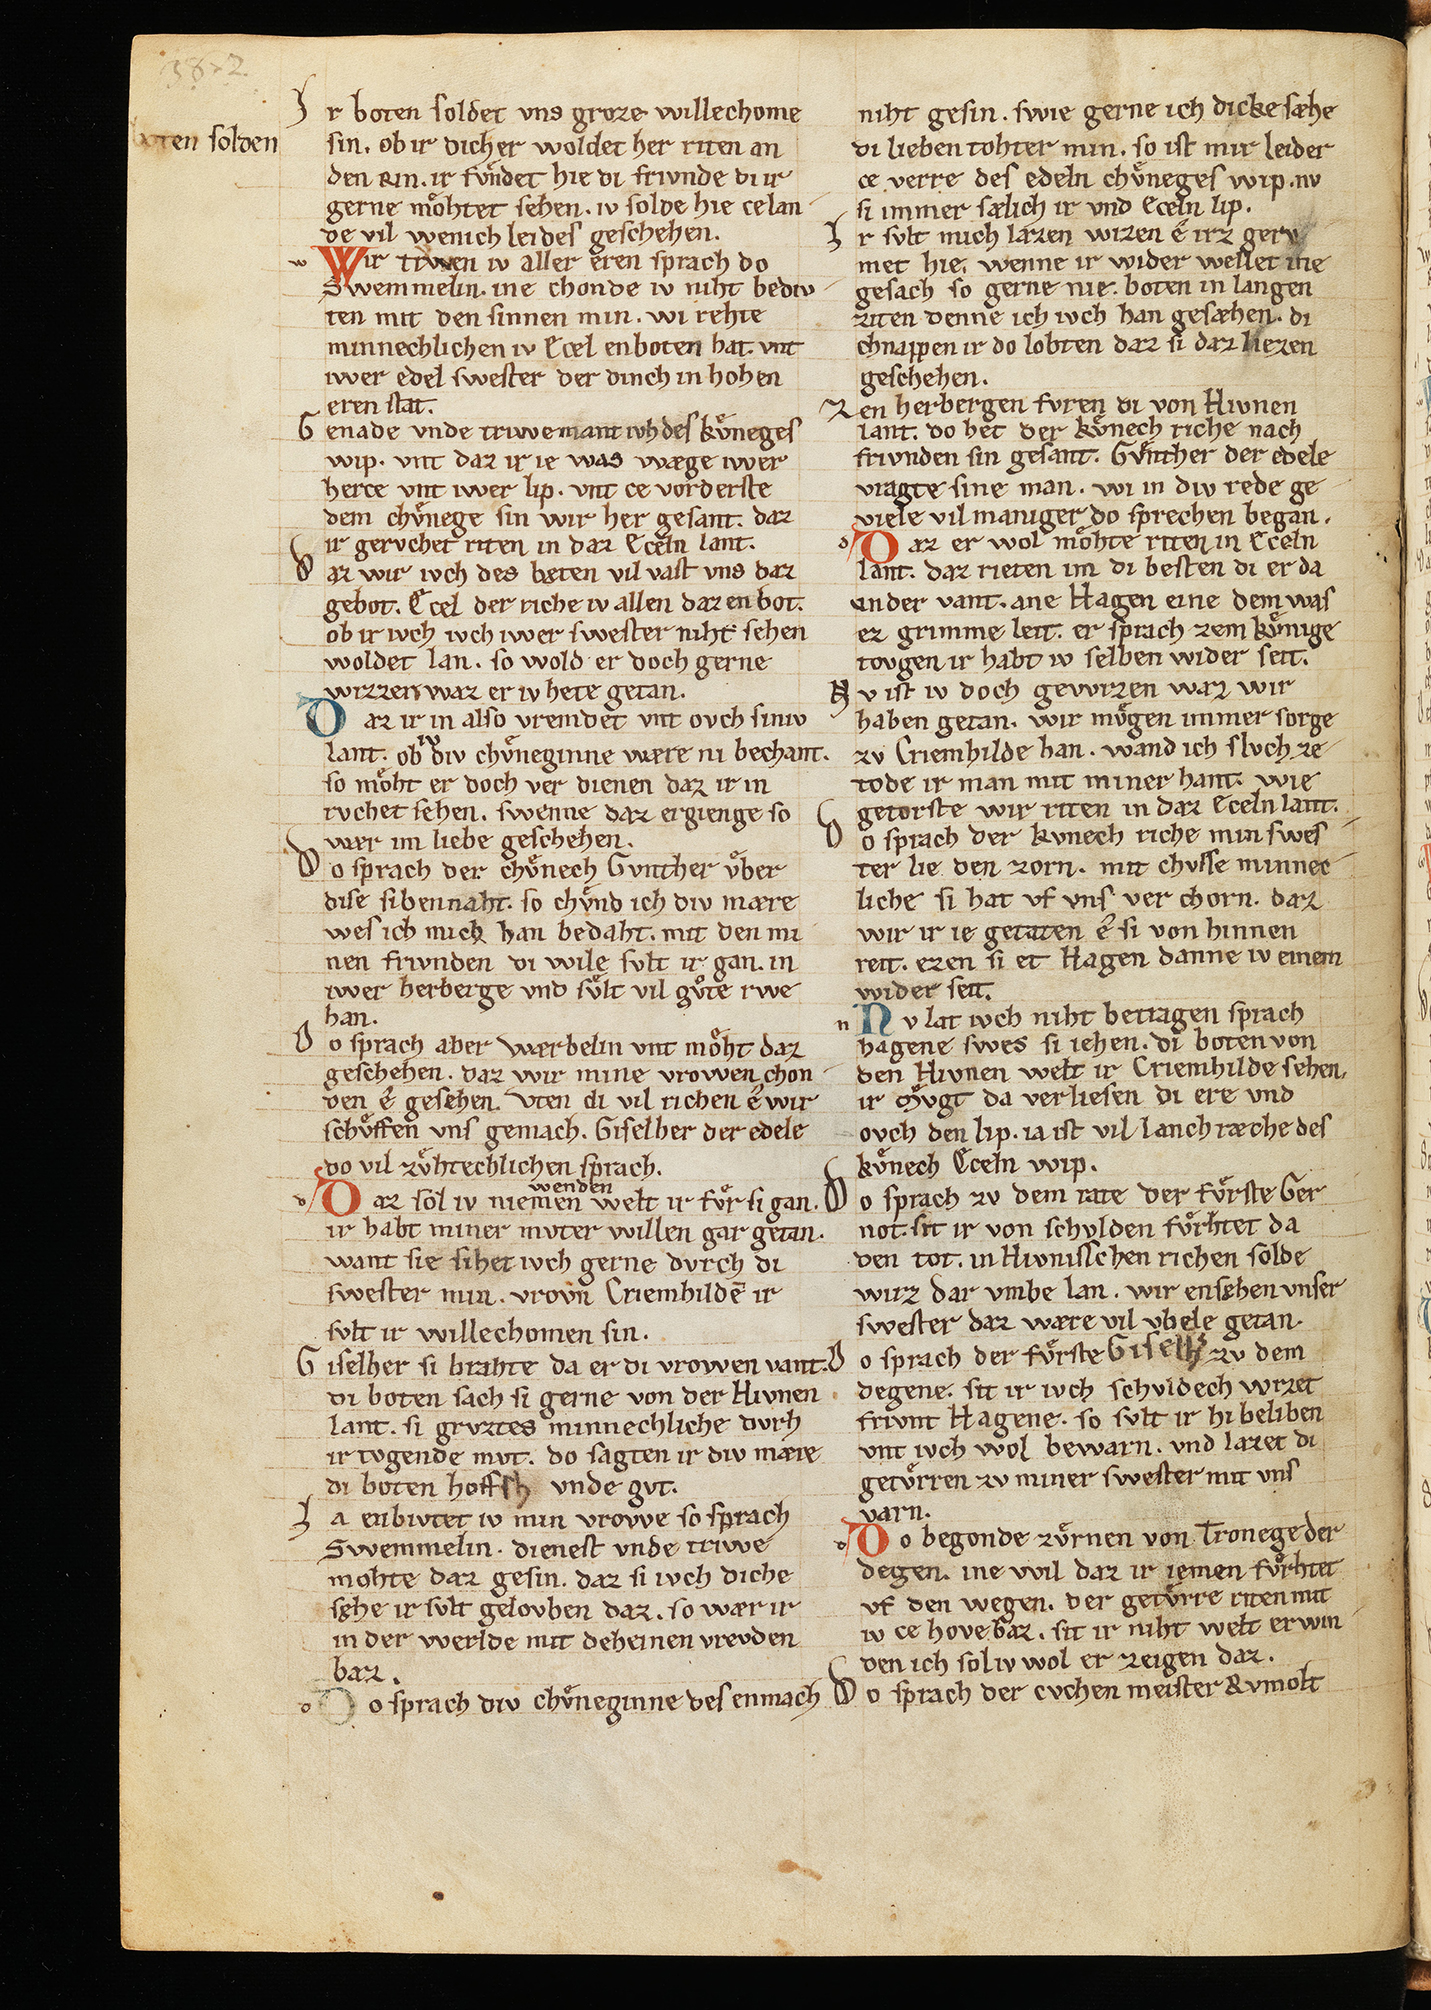 boten solden
Ir boten soldet vns groze willechome
sin. ob ir dicher woldet her riten an
den Rin. ir fvͤndet hie di frivnde di ir
gerne moͤhtet sehen. iv solde hie ce lan
de vil wenich leides geschehen.
Wir trwen iv aller eren sprach do
Swemmelin. ine chonde iv niht bediv
ten mit den sinnen min. wi rehte
minnechlichen iv Ecel enboten hat. vnt
iwer edel swester der dinch in hohen
eren stat.
Genade vnde triwe mant ivch des kvͤneges
wip. vnt daz ir ie was wæge iwer
herce vnt iwer lip. vnt ce vorderste
dem chvͤnege sin wir her gesant. daz
ir gervchet riten in daz Eceln lant.
Daz wir ivch des bæten vil vast vns daz
gebot. Ecel der riche iv allen daz en bot.
ob ir ivch ivch iwer swester niht sehen
woldet lan. so wold er doch gerne
wizzen waz er iv hete getan.
Daz ir in also vremdet vnt ovch siniv
lant. ob iv div chvͤneginne wære ni bechant.
so moͤht er doch ver dienen daz ir in
rvchet sehen. swenne daz ergienge so
wær im liebe geschehen.
Do sprach der chvͤnech Gvnther vͤber
dise siben naht. so chvͤnd ich div mære
wes ich mich han bedaht. mit den mi
nen frivnden di wile svlt ir gan. in
iwer herberge vnd svͤlt vil gvͦte rwe
han.
Do sprach aber Wærbelin vnt moͤht daz
geschehen. daz wir mine vrowen chon
den ê gesehen. Vten di vil richen ê wir
schvͤffen vns gemach. Giselher der edele
do vil zvͤhtechlichen sprach.
wenden
Daz sol iv niemen welt ir fvͤr si gan.
ir habt miner mvter willen gar getan.
want sie sihet ivch gerne dvrch di
swester min. vrovn Criemhildē ir
svlt ir willechomen sin.
Giselher si brahte da er di vrowen vant.
di boten sach si gerne von der Hivnen
lant. si grvztes minnechliche dvrh
ir tvgende mvt. do sagten ir div mære
di boten hoffsh vnde gvt.
Ia enbivtet iv min vrowe so sprach
Swemmelin. dienest vnde triwe
mohte daz gesin. daz si ivch diche
sęhe ir svlt gelovben daz. so wær ir
in der werlde mit deheinen vrevden
baz.
Do sprach div chvͤneginne des enmach
niht gesin. swie gerne ich dicke sæhe
di lieben tohter min. so ist mir leider
ce verre des edeln chvͤneges wip. nv
si immer sælich ir vnd Eceln lip.
Ir svlt mich lazen wizen ê irz gerv
met hie. wenne ir wider wellet ine
gesach so gerne nie. boten in langen
ziten denne ich ivch han gesæhen. di
chnappen ir do lobten daz si daz liezen
geschehen.
Zen herbergen fvren di von Hivnen
lant. do het der kvͤnech riche nach
frivnden sin gesant. Gvͤnther der edele
vragte sine man. wi in div rede ge
viele vil maniger do sprechen began.
Daz er wol moͤhte riten in Eceln
lant. daz rieten im di besten di er da
under vant. ane Hagen eine dem was
ez grimme leit. er sprach zem kvͤnige
tovgen ir habt iv selben wider seit.
Nv ist iv doch gewizen waz wir
haben getan. wir mvͤgen immer sorge
zv Criemhilde han. wand ich slvch ze
tode ir man mit miner hant. wie
getorste wir riten in daz Eceln lant.
Do sprach der kvnech riche min swes
ter lie den zorn. mit chvsse minnec
liche si hat vf vns ver chorn. daz
wir ir ie getaten ê si von hinnen
reit. ezen si et Hagen danne iv einem
wider seit.
Nv lat ivch niht betragen sprach
hagene swes si iehen. di boten von
den Hivnen welt ir Criemhilde sehen.
ir mvgt da verliesen di ere vnd
ovch den lip. ia ist vil lanch ræche des
kvͤnech Eceln wip.
Do sprach zv dem rate der fvͤrste Ger
not. sit ir von schvlden fvͤrhtet da
den tot. in Hivnisschen richen solde
wirz dar vmbe lan. wir ensehen vnser
swester daz wære vil vbele getan.
Do sprach der fvͤrste Giselh' zv dem
degene. sit ir ivch schvldech wizet
frivnt Hagene. so svlt ir hi beliben
vnt ivch wol bewarn. vnd lazet di
getvͤrren zv miner swester mit vns
varn.
Do begonde zvͤrnen von Tronege der
degen. ine wil daz ir iemen fvͤrhtet
vf den wegen. der getvrre riten mit
iv ce hove baz. sit ir niht welt erwin
den ich sol iv wol er zeigen daz.
Do sprach der cvchen meister Rvmolt